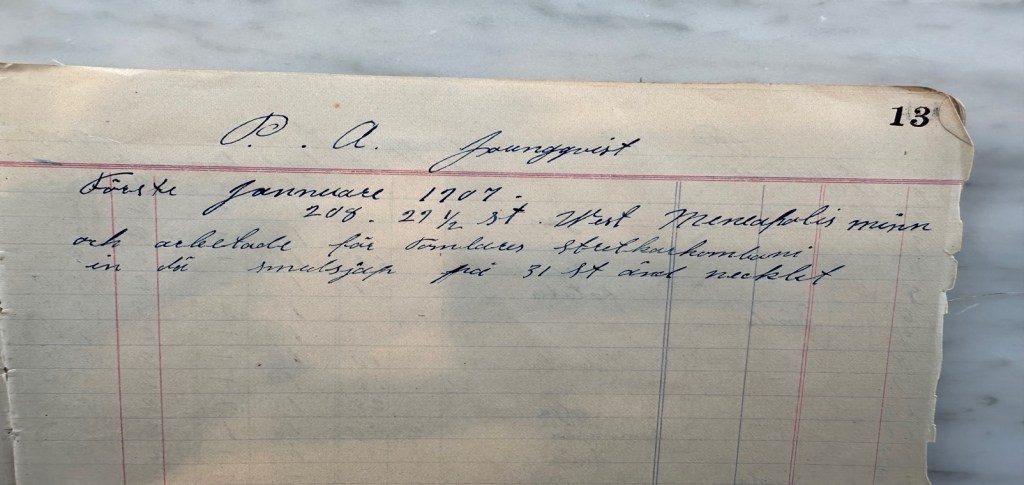 13
P. A. Joungqvist
Förste Jannuare 1907.
208. 27 1/2 st. West Meneapolis minn
och arbetade för Tomlares stretkarkombani
in dä smalsjap på 31 st and necklet